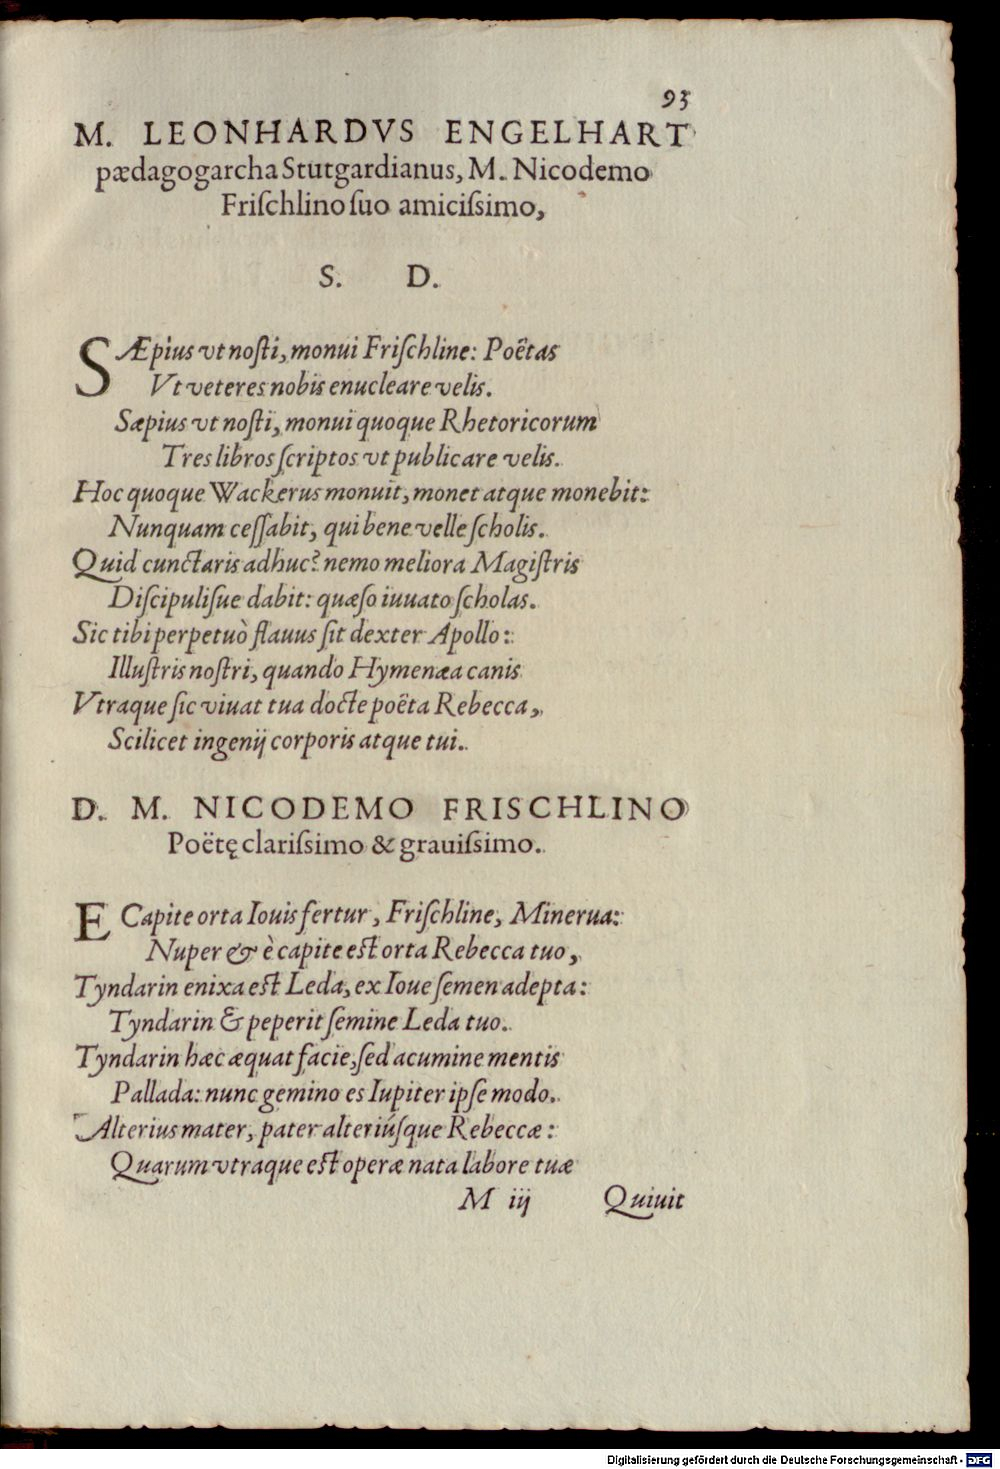 93
M. LEONHARDVS ENGELHART
pædagogarcha Stutgardianus, M. Nicodemo
Friſchlino ſuo amiciſsimo,
S. D.
SÆpius vt noſti, monui Friſchline: Poëtas
Vt veteres nobis enucleare velis.
Sæpius vt noſti, monui quoque Rhetoricorum
Tres libros ſcriptos vt publicare velis.
Hoc quoque Wackerus monuit, monet atque monebit:
Nunquam ceſſabit, qui bene velle ſcholis.
Quid cunctaris adhuc? nemo meliora Magiſtris
Diſcipuliſue dabit: quæſo iuuato ſcholas.
Sic tibi perpetuò flauus ſit dexter Apollo:
Illuſtris noſtri, quando Hymenæa canis
Vtraque ſic viuat tua docte poëta Rebecca,
Scilicet ingenij corporis atque tui.
D. M. NICODEMO FRISCHLINO
Poëtę clariſsimo & grauiſsimo.
E Capite orta Iouis fertur, Friſchline, Minerua:
Nuper & è capite eſt orta Rebecca tuo,
Tyndarin enixa eſt Leda, ex Ioue ſemen adepta:
Tyndarin & peperit ſemine Leda tuo.
Tyndarin hæc æquat facie, ſed acumine mentis
Pallada: nunc gemino es Iupiter ipſe modo.
Alterius mater, pater alteriúſque Rebeccæ:
Quarum vtraque eſt operæ nata labore tuæ
M iij Quiuit
Digitalisierung gefördert durch die Deutsche Forschungsgemeinschaft - DFG